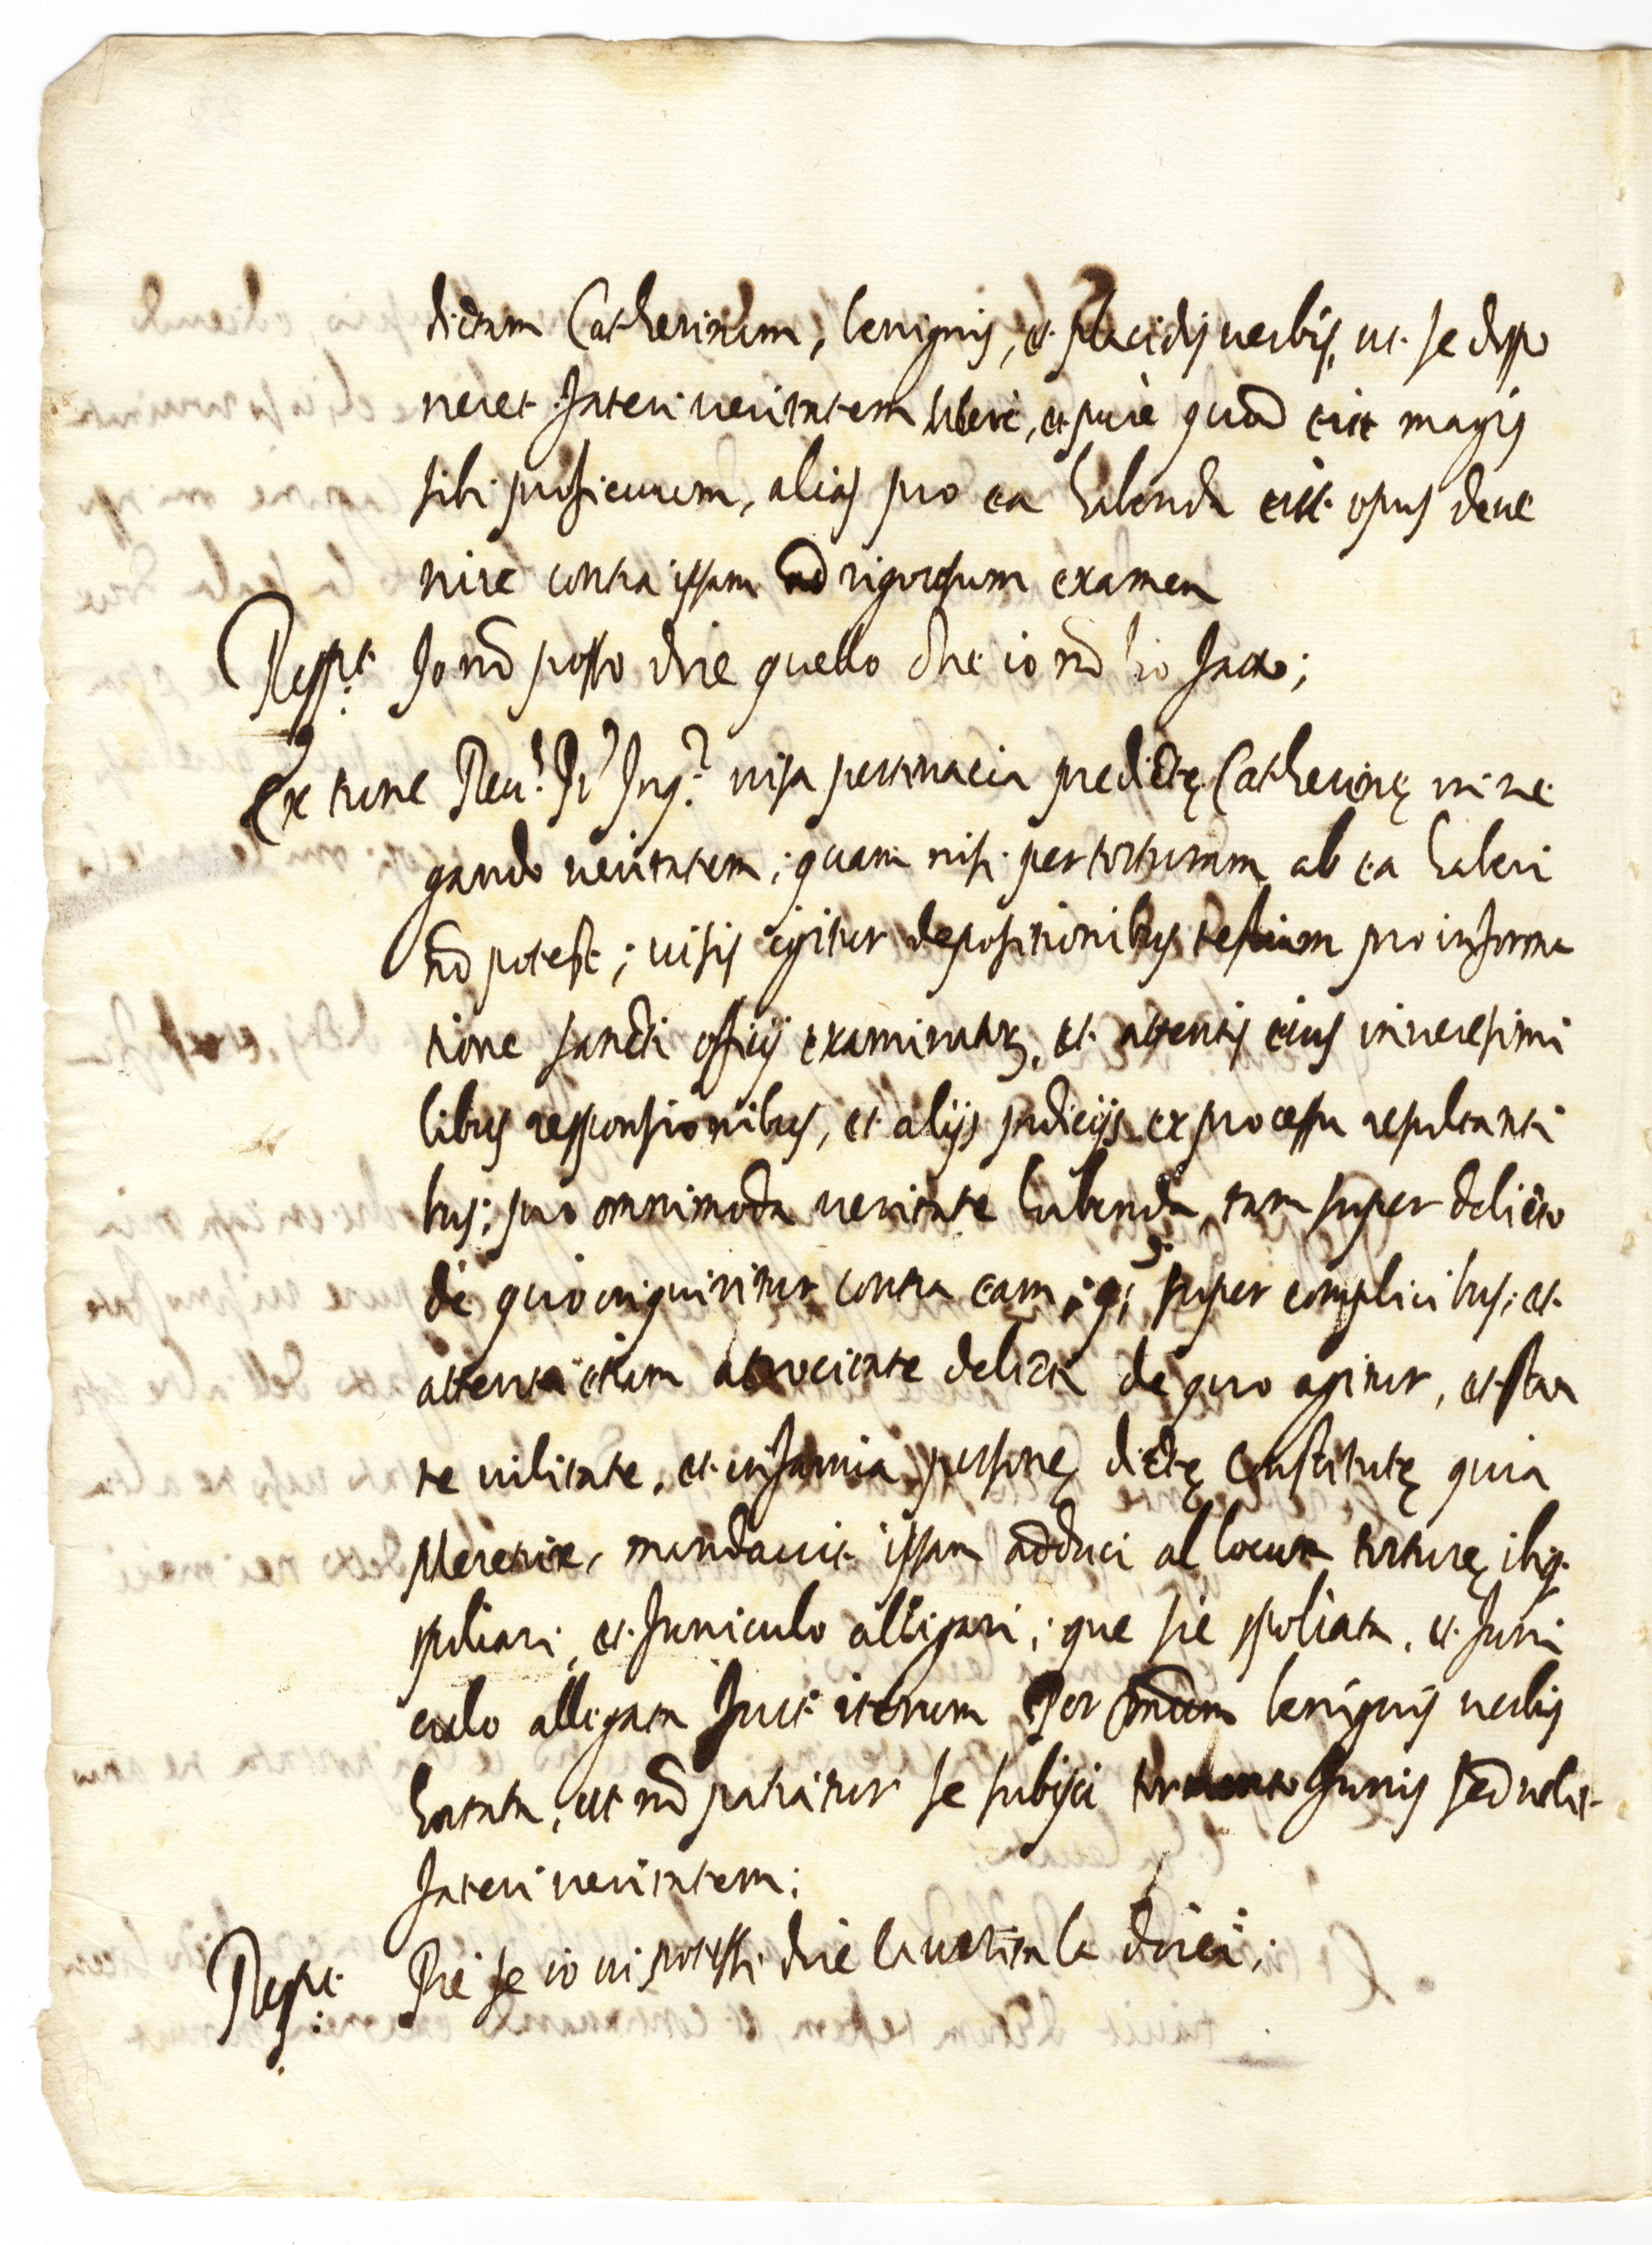 dictam Catherinam, benignis, et placidis verbis, ut se dispo
neret fateri veritatem liberè, et purè quod erit magis
sibi proficuum, alias pro ea habenda erit opus deue
nire contra ipsam ad rigorosum examen
Respt. Io nõ posso dire quello che io nõ ho fatto;
Ex tunc Reu.s Pr Inq.r visa pertinacia predictę Catherinę in ne
gando ueritatem; quam nisi per torturam ab ea haberi
nõ potest; uisis igitur depositionibus testium pro informa
tione sancti officij examinatorum, et attentis eius inuerisimi
libus responsionibus, et alijs indicijs ex processu resultanti
bus; pro omnimoda ueritate habenda, tam super delicto
de quo inquiritur contra eam; q; super complicibus; et
attenta etiam atrocitate delicti de quo agitur, et stan
te uilitate, et infamia personę dictę constitutę quia
Meretrix, mandauit ipsam adduci ad locum torturę ibiq.
spoliari, et funiculo alligari; que sic spoliata, et funi
culo alligata fuit iterum per benignis uerbis
hortata, ut nõ patiatur se subijci tormento funis sed uelit
fateri ueritatem;
Respt. Prè se io ui potessi dire la uerita la direi;